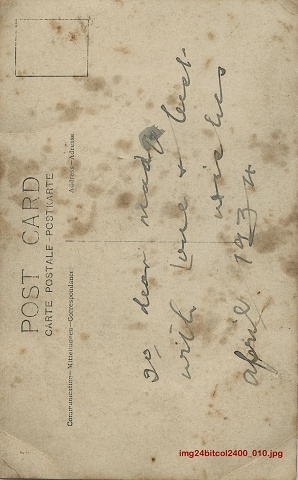 POST CARD
CARTE POSTALE-POSTKARTE
Communication-Mitteilungen-Correspondance
Address-Adresse
To dear madge
with Love & best
wishes
april 1934
img24bitcol2400_010.jpg